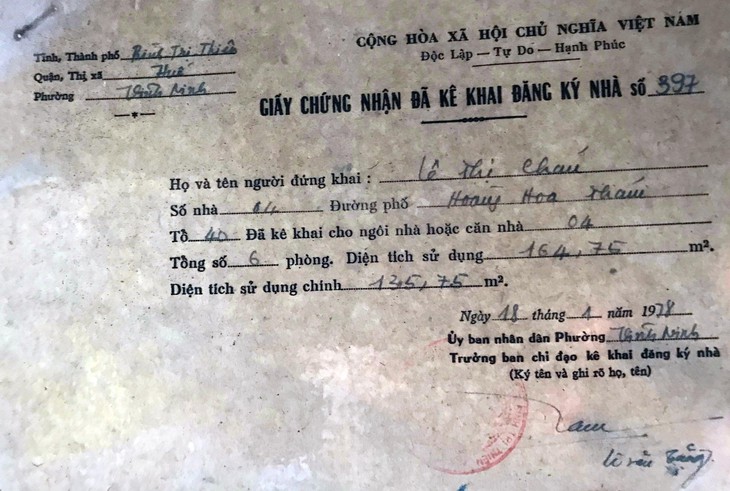 CỘNG HÒA XÃ HỘI CHỦ NGHĨA VIỆT NAM
Độc Lập — Tự Do — Hạnh Phúc
Tỉnh, Thành phố Bình Trị Thiên
Quận, Thị xã Huế
Phường Vĩnh Ninh
GIẤY CHỨNG NHẬN ĐÃ KÊ KHAI ĐĂNG KÝ NHÀ SỐ 397
Họ và tên người đứng khai : Lê Thị Cháu
Số nhà 04 Đường phố Hoàng Hoa Thám
Tổ 40 Đã kê khai cho ngôi nhà hoặc căn nhà 04
Tổng số 6 phòng. Diện tích sử dụng 164,75 m².
Diện tích sử dụng chính 135,75 m².
Ngày 18 tháng 4 năm 1978
Ủy ban nhân dân Phường Vĩnh Ninh
Trưởng ban chỉ đạo kê khai đăng ký nhà
(Ký tên và ghi rõ họ, tên)
Lê Văn